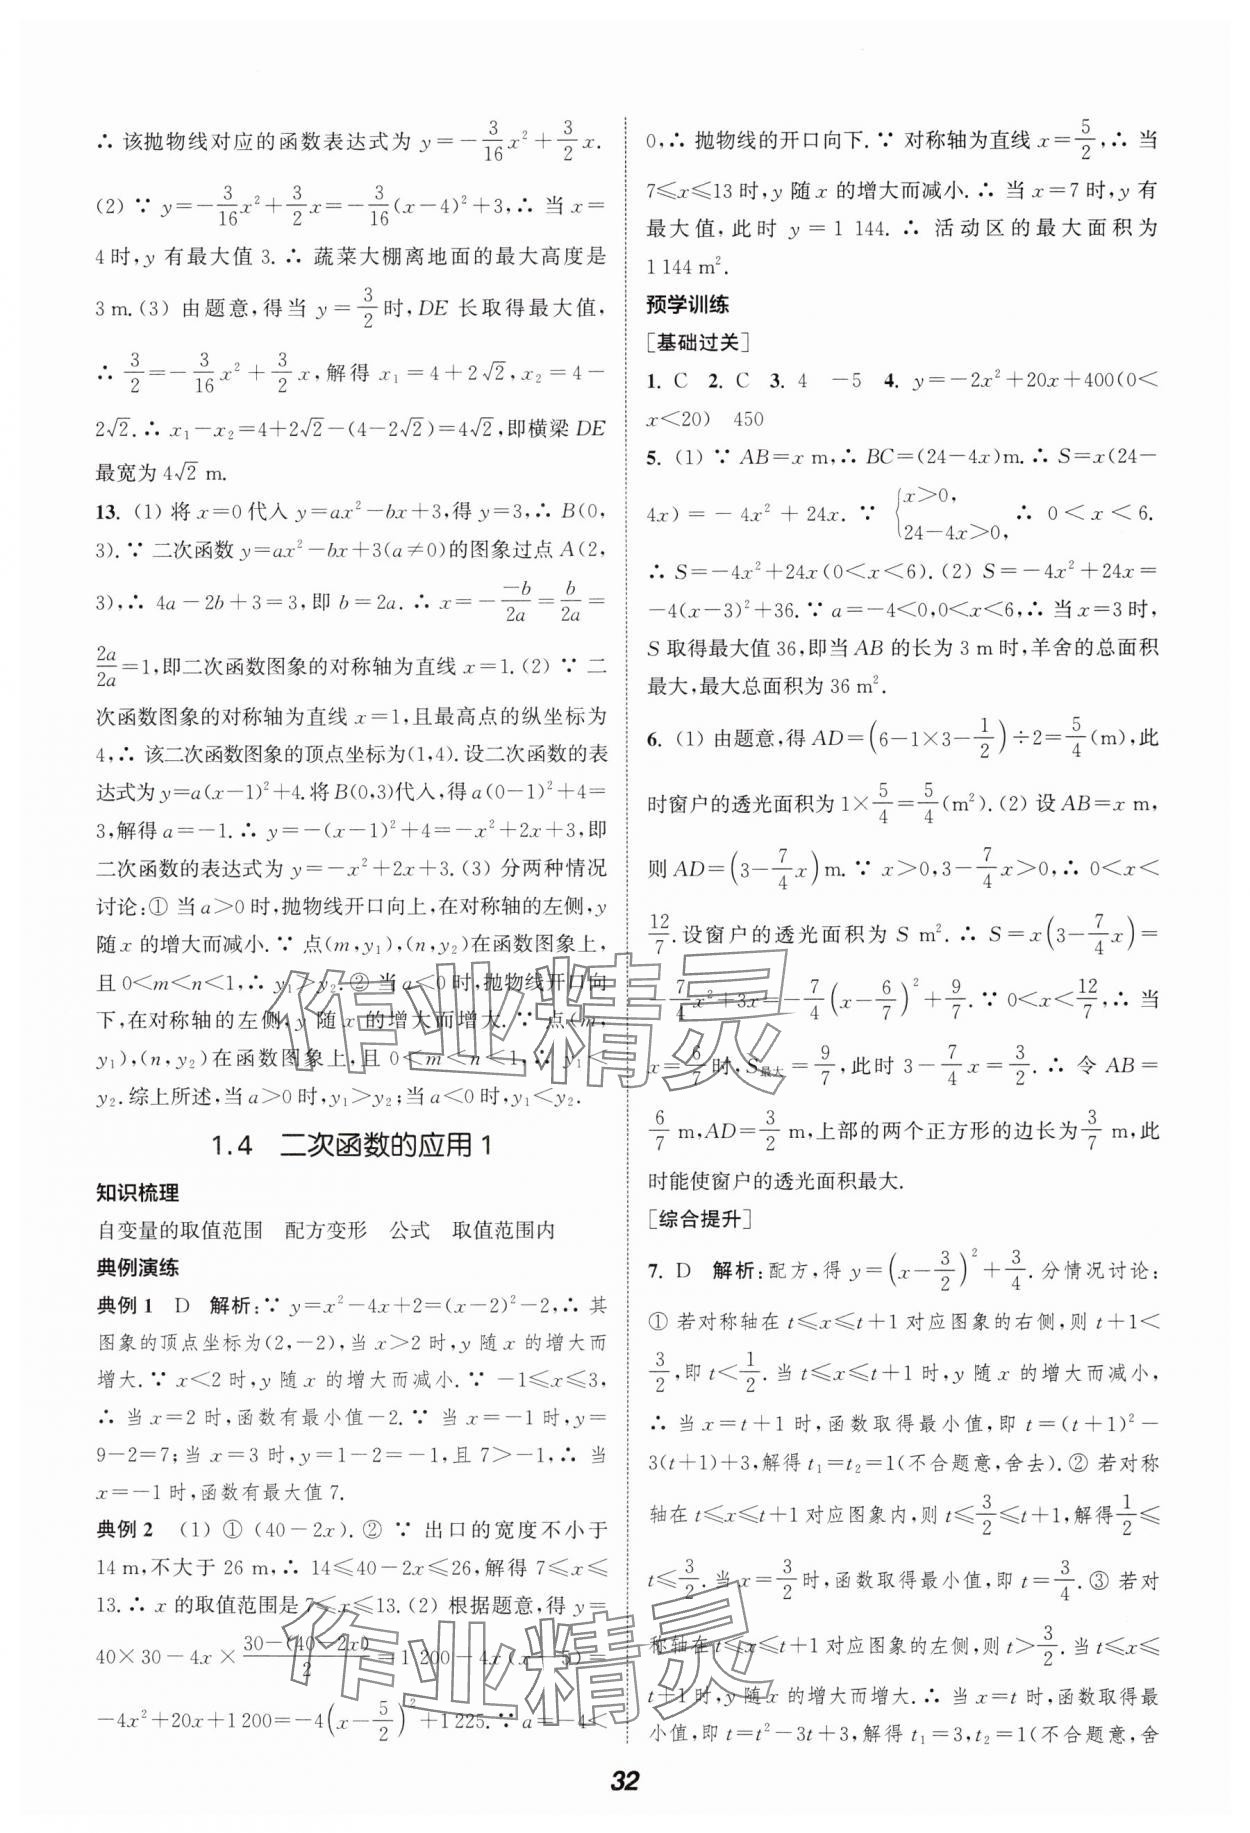 ∴ 该抛物线对应的函数表达式为 y=-3/16x²+3/2x.
(2) ∵ y=-3/16x²+3/2x=-3/16(x-4)²+3,∴ 当 x=
4 时,y 有最大值 3.∴ 蔬菜大棚离地面的最大高度是
3 m.(3) 由题意,得当 y=3/2时,DE 长取得最大值,
∴ 3/2=-3/16x²+3/2x,解得 x₁=4+2√2,x₂=4-
2√2.∴ x₁-x₂=4+2√2-(4-2√2)=4√2,即横梁 DE
最宽为 4√2 m.
13. (1) 将 x=0 代入 y=ax²-bx+3,得 y=3,∴ B(0,
3).∵ 二次函数 y=ax²-bx+3(a≠0)的图象过点 A(2,
3),∴ 4a-2b+3=3,即 b=2a.∴ x=-(-b)/2a=b/2a=
2a/2a=1,即二次函数图象的对称轴为直线 x=1.(2) ∵ 二
次函数图象的对称轴为直线 x=1,且最高点的纵坐标为
4,∴ 该二次函数图象的顶点坐标为(1,4).设二次函数的表
达式为 y=a(x-1)²+4.将 B(0,3)代入,得 a(0-1)²+4=
3,解得 a=-1.∴ y=-(x-1)²+4=-x²+2x+3,即
二次函数的表达式为 y=-x²+2x+3.(3) 分两种情况
讨论:① 当 a>0 时,抛物线开口向上,在对称轴的左侧,y
随 x 的增大而减小.∵ 点(m,y₁),(n,y₂)在函数图象上,
且 0<m<n<1,∴ y₁>y₂.② 当 a<0 时,抛物线开口向
下,在对称轴的左侧,y 随 x 的增大而增大.∵ 点(m,
y₁),(n,y₂)在函数图象上,且 0<m<n<1,∴ y₁<
y₂.综上所述,当 a>0 时,y₁>y₂;当 a<0 时,y₁<y₂.
1.4 二次函数的应用 1
知识梳理
自变量的取值范围 配方变形 公式 取值范围内
典例演练
典例 1 D 解析:∵ y=x²-4x+2=(x-2)²-2,∴ 其
图象的顶点坐标为(2,-2),当 x>2 时,y 随 x 的增大而
增大.∵ x<2 时,y 随 x 的增大而减小.∵ -1≤x≤3,
∴ 当 x=2 时,函数有最小值-2.∵ 当 x=-1 时,y=
9-2=7;当 x=3 时,y=1-2=-1,且 7>-1,∴ 当
x=-1 时,函数有最大值 7.
典例 2 (1) ① (40-2x).② ∵ 出口的宽度不小于
14 m,不大于 26 m,∴ 14≤40-2x≤26,解得 7≤x≤
13.∴ x 的取值范围是 7≤x≤13.(2) 根据题意,得 y=
40×30-4x×(30-(40-2x))/2=1 200-4x(x-5)=
-4x²+20x+1 200=-4(x-5/2)²+1 225.∵ a=-4<
0,∴ 抛物线的开口向下.∵ 对称轴为直线 x=5/2,∴ 当
7≤x≤13 时,y 随 x 的增大而减小.∴ 当 x=7 时,y 有
最大值,此时 y=1 144.∴ 活动区的最大面积为
1 144 m².
预学训练
[基础过关]
1. C 2. C 3. 4 -5 4. y=-2x²+20x+400(0<
x<20) 450
5. (1) ∵ AB=x m,∴ BC=(24-4x)m.∴ S=x(24-
4x)=-4x²+24x.∵ {x>0, 24-4x>0, ∴ 0<x<6.
∴ S=-4x²+24x(0<x<6).(2) S=-4x²+24x=
-4(x-3)²+36.∵ a=-4<0,0<x<6,∴ 当 x=3 时,
S 取得最大值 36,即当 AB 的长为 3 m 时,羊舍的总面积
最大,最大总面积为 36 m².
6. (1) 由题意,得 AD=(6-1×3-1/2)÷2=5/4(m),此
时窗户的透光面积为 1×5/4=5/4(m²).(2) 设 AB=x m,
则 AD=(3-7/4x)m.∵ x>0,3-7/4x>0,∴ 0<x<
12/7.设窗户的透光面积为 S m².∴ S=x(3-7/4x)=
-7/4x²+3x=-7/4(x-6/7)²+9/7.∵ 0<x<12/7,∴ 当
x=6/7时,S最大=9/7,此时 3-7/4x=3/2.∴ 令 AB=
6/7 m,AD=3/2 m,上部的两个正方形的边长为3/7 m,此
时能使窗户的透光面积最大.
[综合提升]
7. D 解析:配方,得 y=(x-3/2)²+3/4.分情况讨论:
① 若对称轴在 t≤x≤t+1 对应图象的右侧,则 t+1<
3/2,即 t<1/2.当 t≤x≤t+1 时,y 随 x 的增大而减小,
∴ 当 x=t+1 时,函数取得最小值,即 t=(t+1)²-
3(t+1)+3,解得 t₁=t₂=1(不合题意,舍去).② 若对称
轴在 t≤x≤t+1 对应图象内,则 t≤3/2≤t+1,解得1/2≤
t≤3/2.当 x=3/2时,函数取得最小值,即 t=3/4.③ 若对
称轴在 t≤x≤t+1 对应图象的左侧,则 t>3/2.当 t≤x≤
t+1 时,y 随 x 的增大而增大.∴ 当 x=t 时,函数取得最
小值,即 t=t²-3t+3,解得 t₁=3,t₂=1(不合题意,舍
32
作业精灵
作业精灵